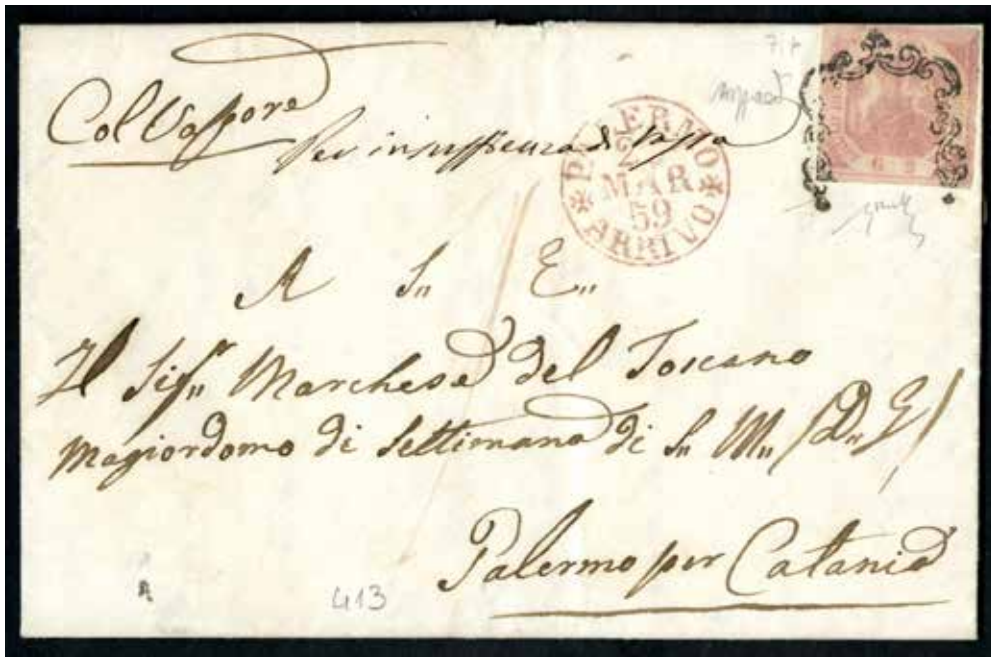 Col Vapore
Per insufficienza di tassa
PALERMO
2
MAR
59
ARRIVO
A Sn En
Il Sigr Marchese del Toscano
Magiordomo di Settimana di Sn Mn (D. G.)
Palermo per Catania
413